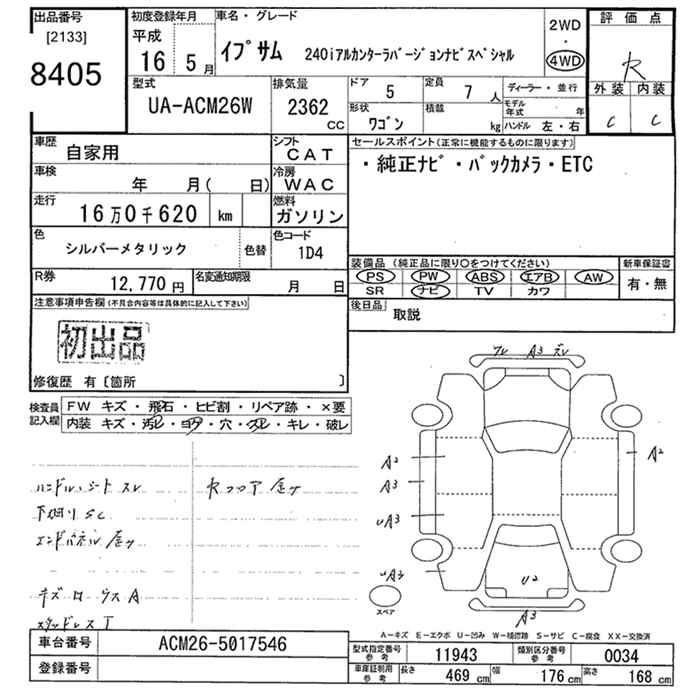 出品番号 初度登録年月 車名・グレード 2WD 評価点
[2133] 平成 ・
8405 16 5月 イプサム 240iアルカンターラバージョンナビスペシャル 4WD R
型式 排気量 ドア 5 定員 7人 ディーラー・並行 外装 内装
UA-ACM26W 2362 CC 形状 ワゴン 積載 kg モデル年式 年 C C
ハンドル 左・右
車歴 自家用 シフト CAT セールスポイント(正常に機能するものに限ります)
車検 年 月( 日) 冷房 WAC ・純正ナビ・バックカメラ・ETC
走行 16万0千620 km 燃料 ガソリン
色 シルバーメタリック 色替 色コード 1D4
装備品(純正品に限り○をつけてください) 新車保証書
R券 12,770円 名変通知期限 月 日 PS PW ABS エアB AW 有・無
SR ナビ TV カワ
注意事項申告欄(不具合内容等は具体的に記入して下さい) 後日品 取説
初出品
修復歴 有〔箇所 〕
フレ A3 ズレ
検査員記入欄 FW キズ・飛石・ヒビ割・リペア跡・×要
内装 キズ・汚レ・コゲ・穴・スレ・キレ・破レ
A2 A2
ハンドル、シート スレ
A3
下廻り SC UA3
エンドパネル
UA3 U2
スペア
A3
A-キズ E-エクボ U-凹み W-補修跡 S-サビ C-腐食 XX-交換済
車台番号 ACM26-5017546 型式指定番号 参考 11943 類別区分番号 参考 0034
登録番号 車庫証明用 参考 長さ 469 cm 幅 176 cm 高さ 168 cm